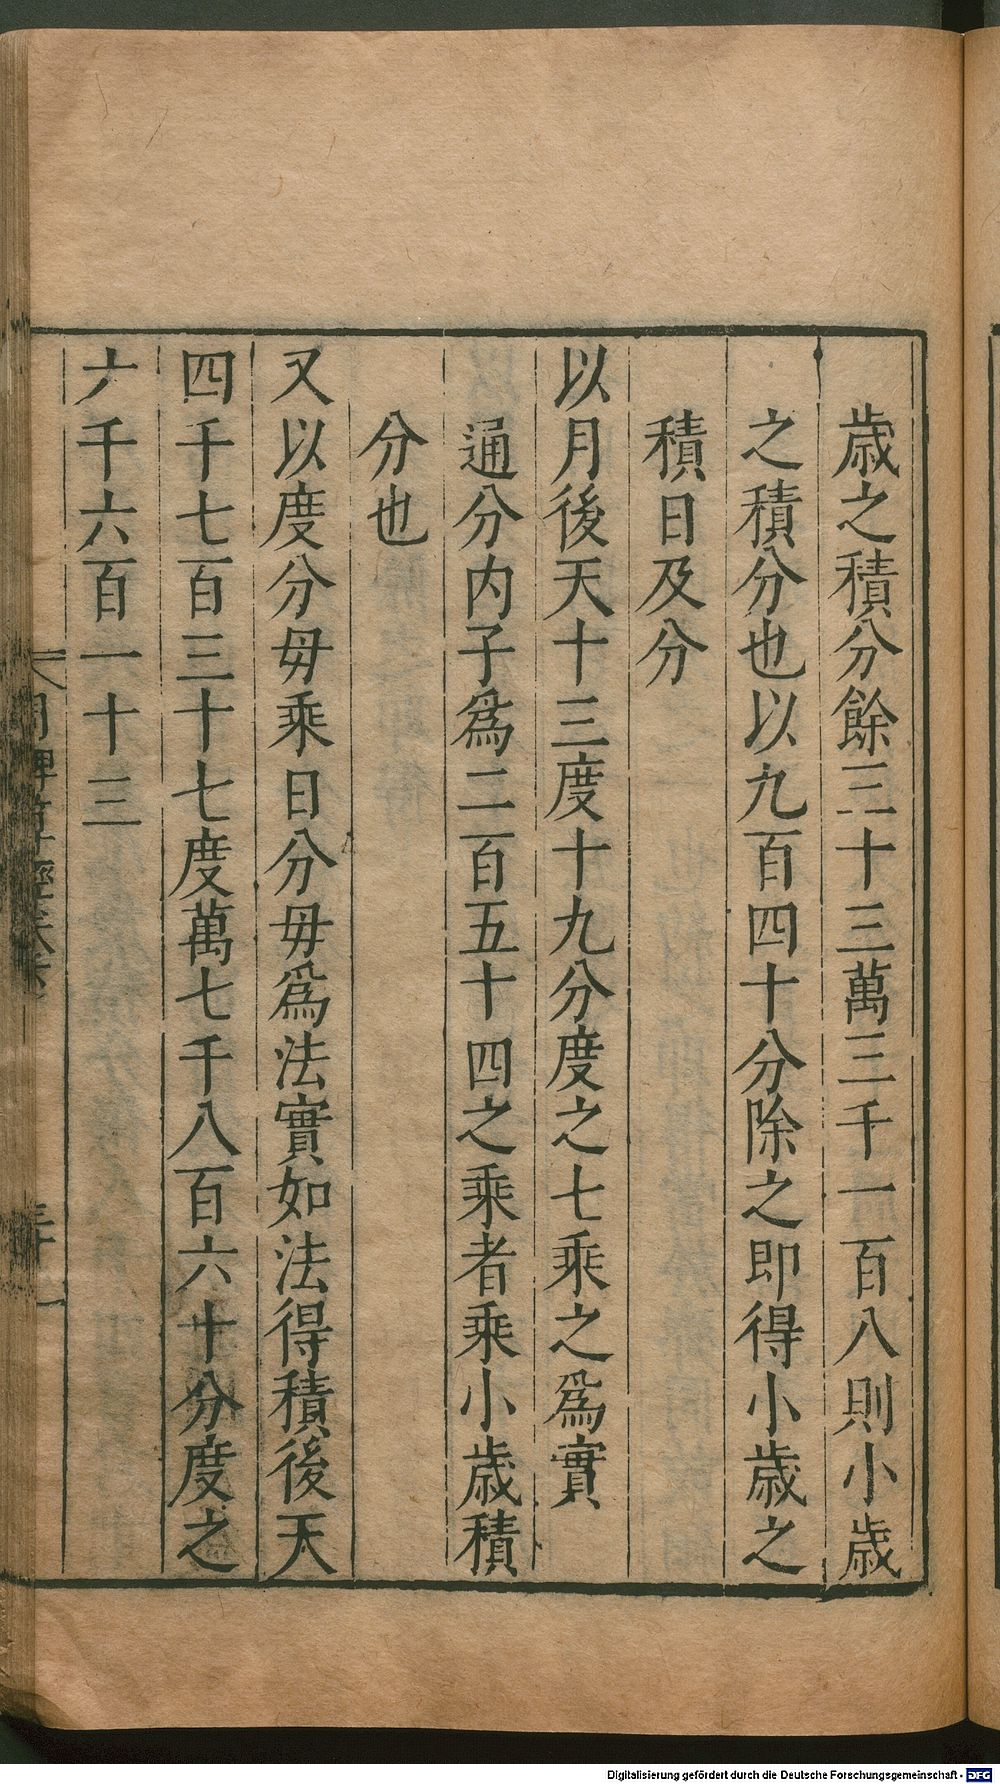 歲之積分餘三十三萬三千一百八則小歲
之積分也以九百四十分除之即得小歲之
積日及分
以月後天十三度十九分度之七乘之爲實
通分内子爲二百五十四之乘者乘小歲積
分也
又以度分毋乘日分毋爲法實如法得積後天
四千七百三十七度萬七千八百六十分度之
六千六百一十三
周髀算經卷下
三十一
Digitalisierung gefördert durch die Deutsche Forschungsgemeinschaft - DFG